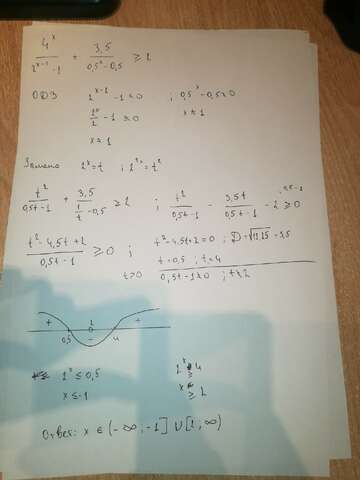 4^x / (2^(x-1) - 1) + 3,5 / (0,5^x - 0,5) ≥ 2
ОДЗ 2^(x-1) - 1 ≠ 0 ; 0,5^x - 0,5 ≠ 0
2^x / 2 - 1 ≠ 0 x ≠ 1
x ≠ 1
Замена 2^x = t ; 2^(2x) = t^2
t^2 / (0,5t - 1) + 3,5 / (1/t - 0,5) ≥ 2 ; t^2 / (0,5t - 1) - 3,5t / (0,5t - 1) - 2 ≥ 0
(t^2 - 4,5t + 2) / (0,5t - 1) ≥ 0 ; t^2 - 4,5t + 2 = 0 ; D = √12,25 = 3,5
t = 0,5 ; t = 4
t > 0 0,5t - 1 ≠ 0 ; t ≠ 2
+ 2 +
0,5 - 4
2^x ≤ 0,5 2^x ≥ 4
x ≤ -1 x ≥ 2
Ответ: x ∈ (-∞; -1] ∪ [2; ∞)